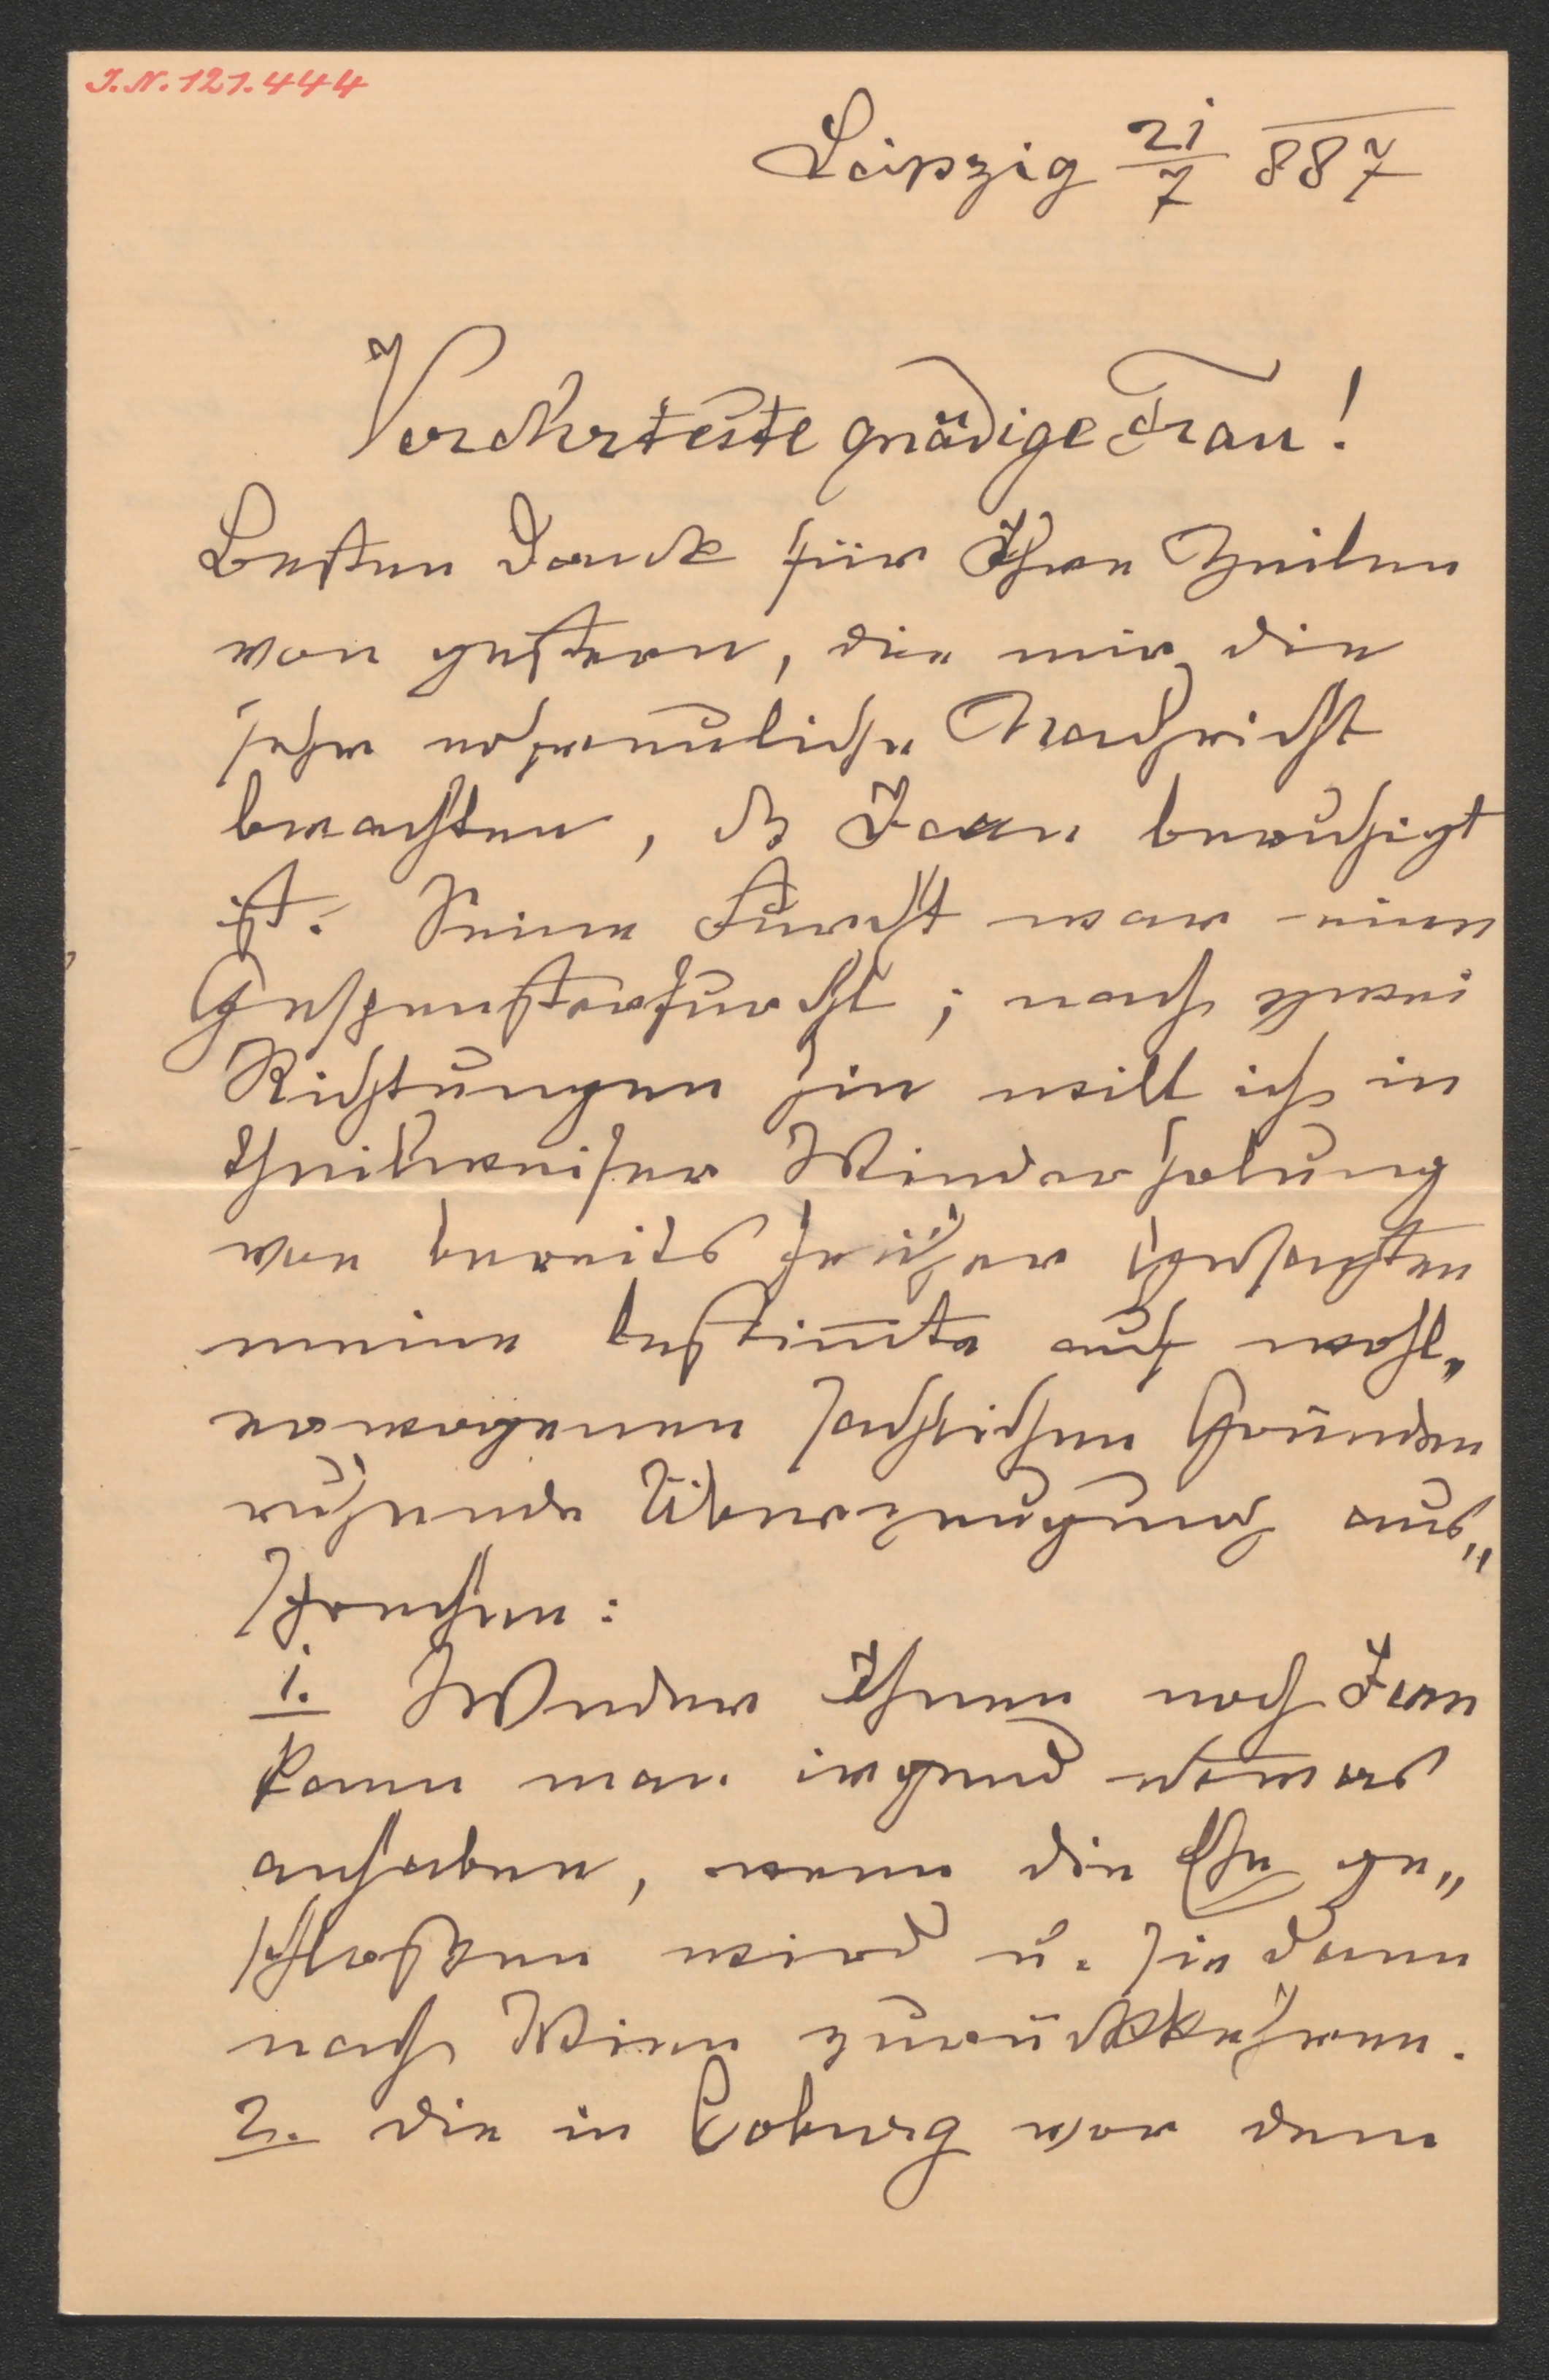 J.N. 121.444
Leipzig 21/7 887
Verehrteste gnädige Frau!
Besten Dank für Ihre Zeilen
von gestern, die mir die
sehr erfreuliche Nachricht
brachten, dß Jean beruhigt
ist. Seine Furcht war eine
Gespensterfurcht; nach zwei
Richtungen hin will ich in
theilweiser Wiederholung
von bereits früher Gesagten
meine bestim̄te auf wohl„
erwogenen sachlichen Gründen
ruhende Überzeugung aus„
sprechen:
1. Weder Ihnen noch Jean
kann man irgend etwas
anhaben, wenn die Ehe ge„
schloßen wird u. Sie dann
nach Wien zurückkehren.
2. die in Coburg vor dem